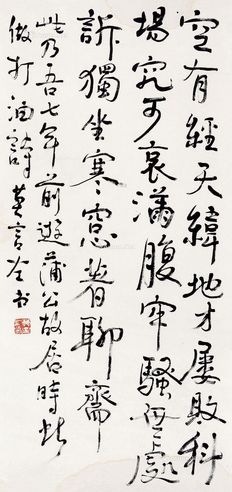 空有經天緯地才屢敗科
場究可哀滿腹牢騷無處
訴獨坐寒窓著聊齋
此乃吾七年前遊蒲公故居時所
做打油詩 莫言左书